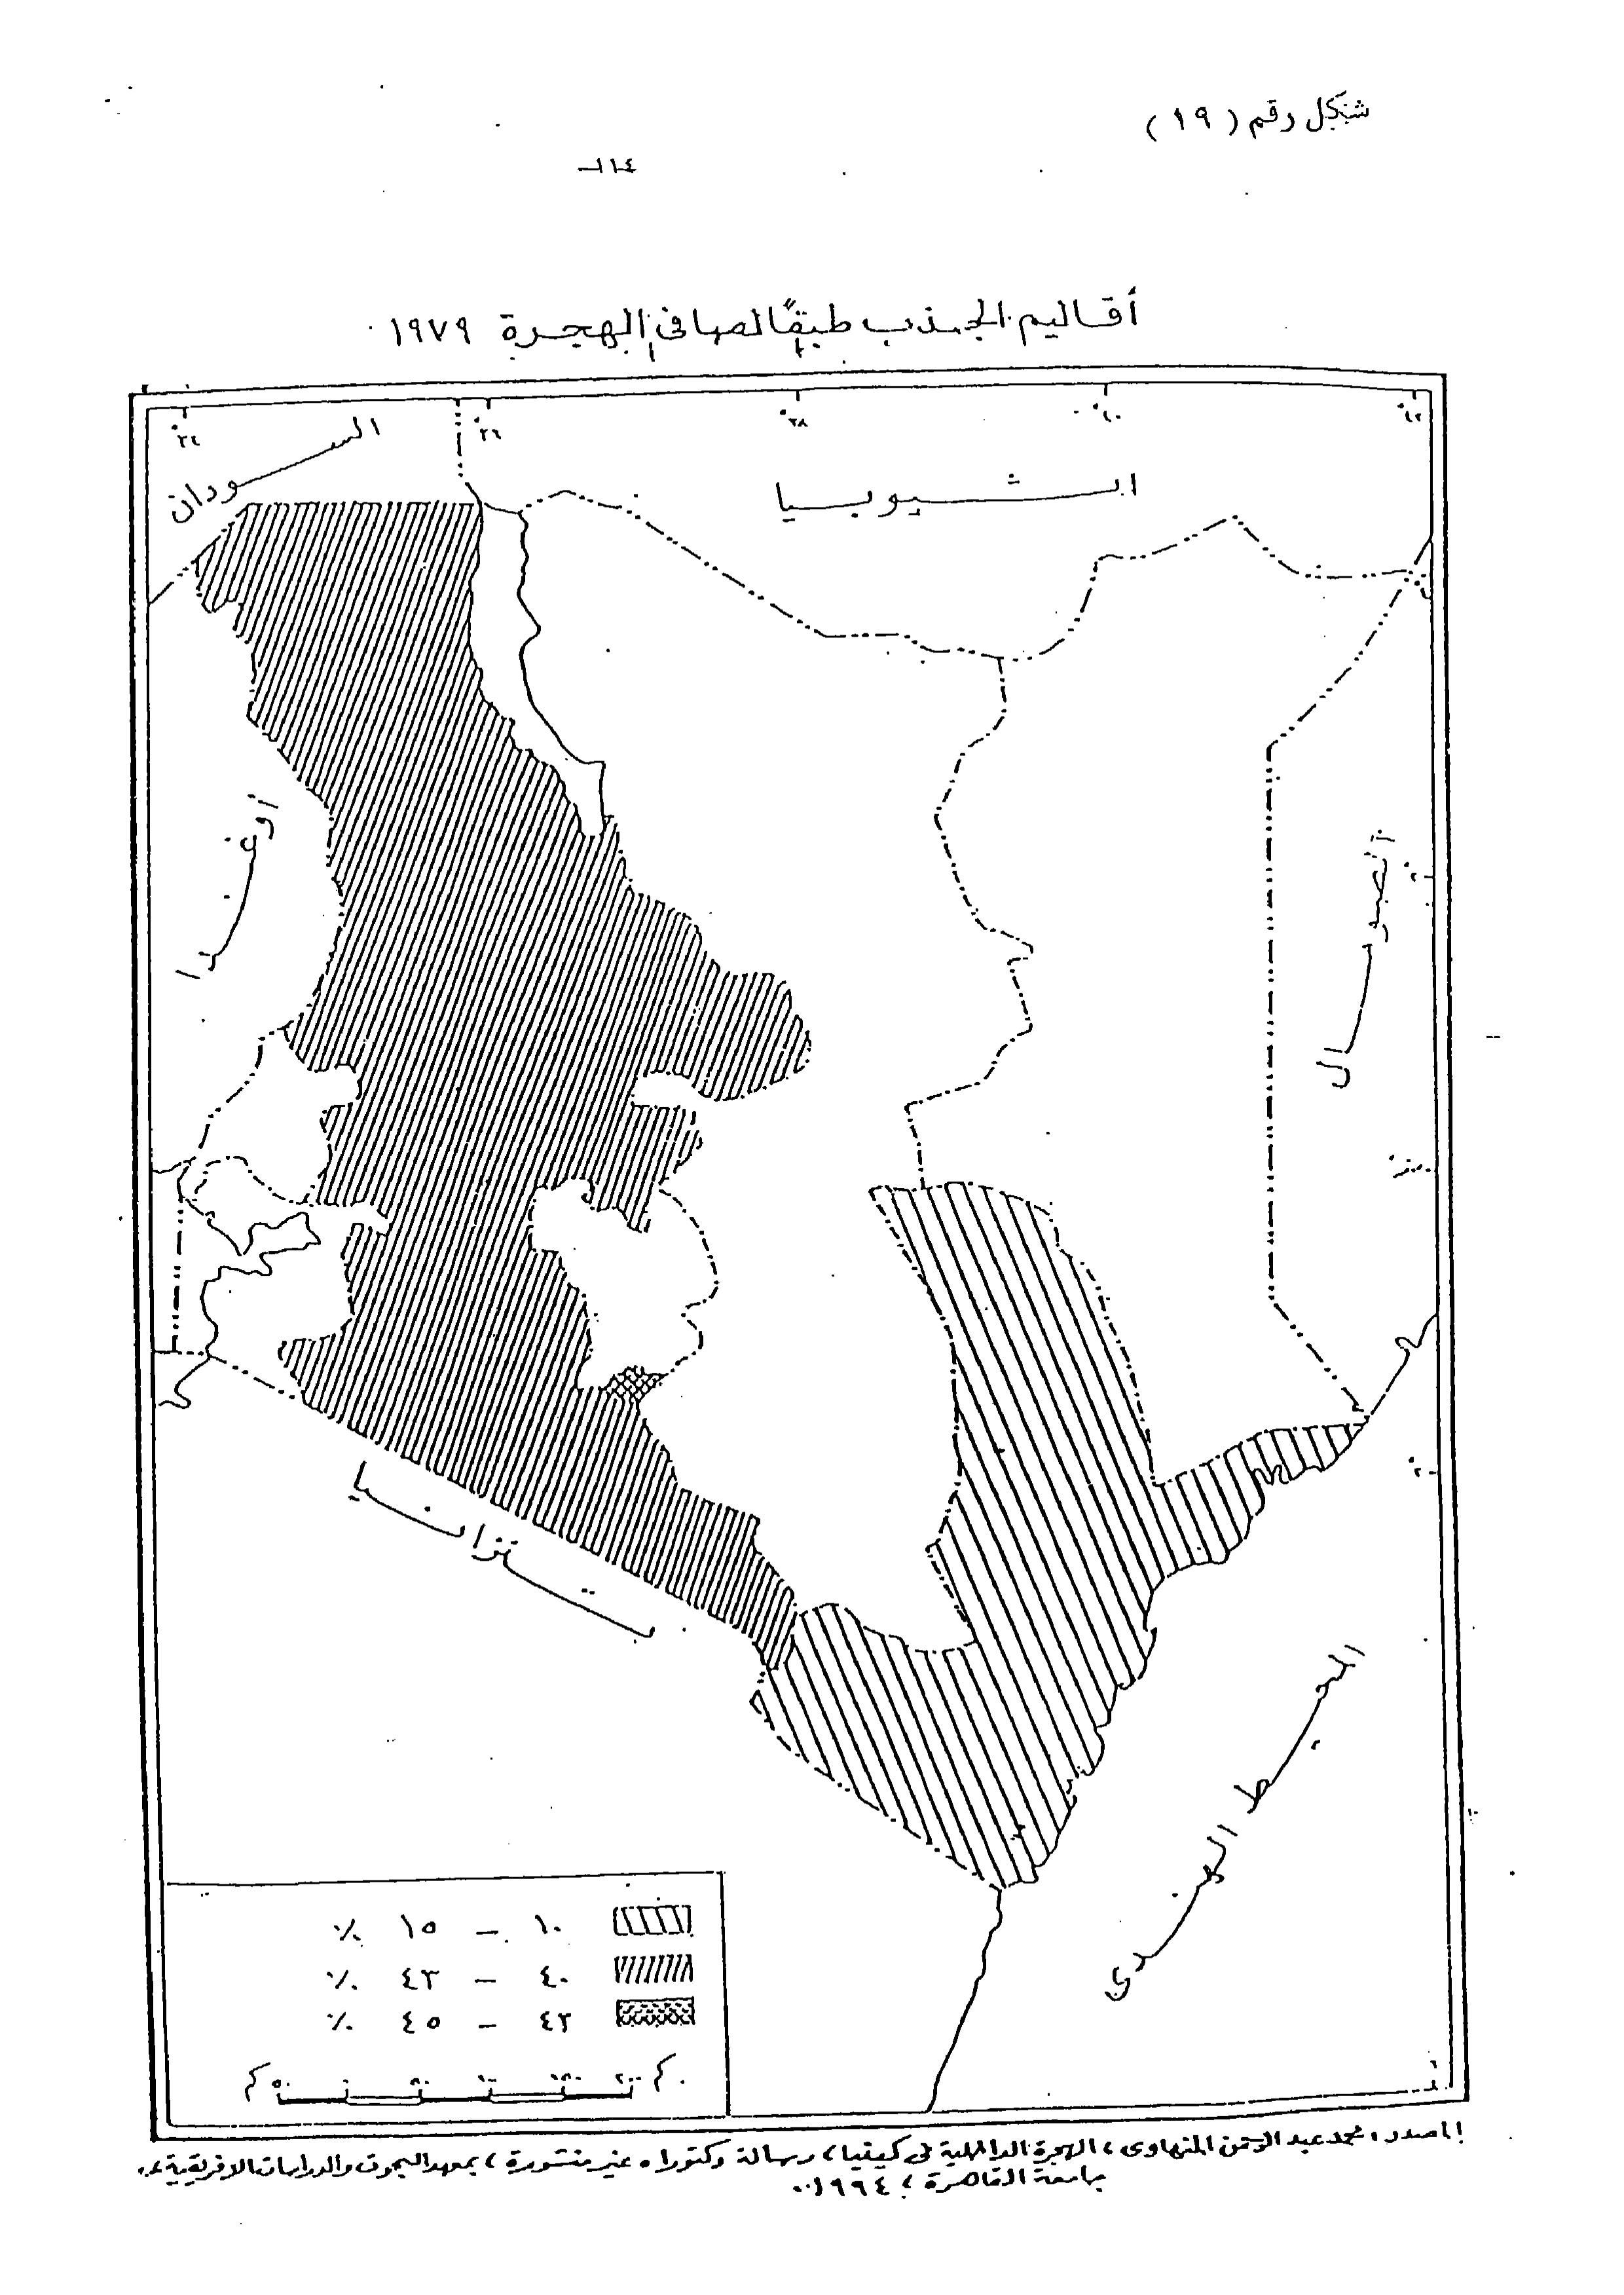 شكل رقم (١٩)
-١١٤-
أقاليم الجذب طبقًا لصافى الهجرة ١٩٧٩
°٣٤
°٣٦
°٣٨
°٤٠
°٤٢
السودان
اثيوبيا
أوغندا
الصومال
°٢
°٢
تنزانيا
المحيط الهندى
١٠ - ١٥ ٪
٤٠ - ٤٣ ٪
٤٣ - ٤٥ ٪
كم ٥٠ ٠ ٥٠ ١٠٠ ١٥٠ ٢٠٠ كم
المصدر: محمد عبد الرحمن المنهاوى، الهجرة الداخلية فى كينيا، رسالة دكتوراه غير منشورة، بمعهد البحوث والدراسات الافريقية،
جامعة القاهرة، ١٩٩٤.